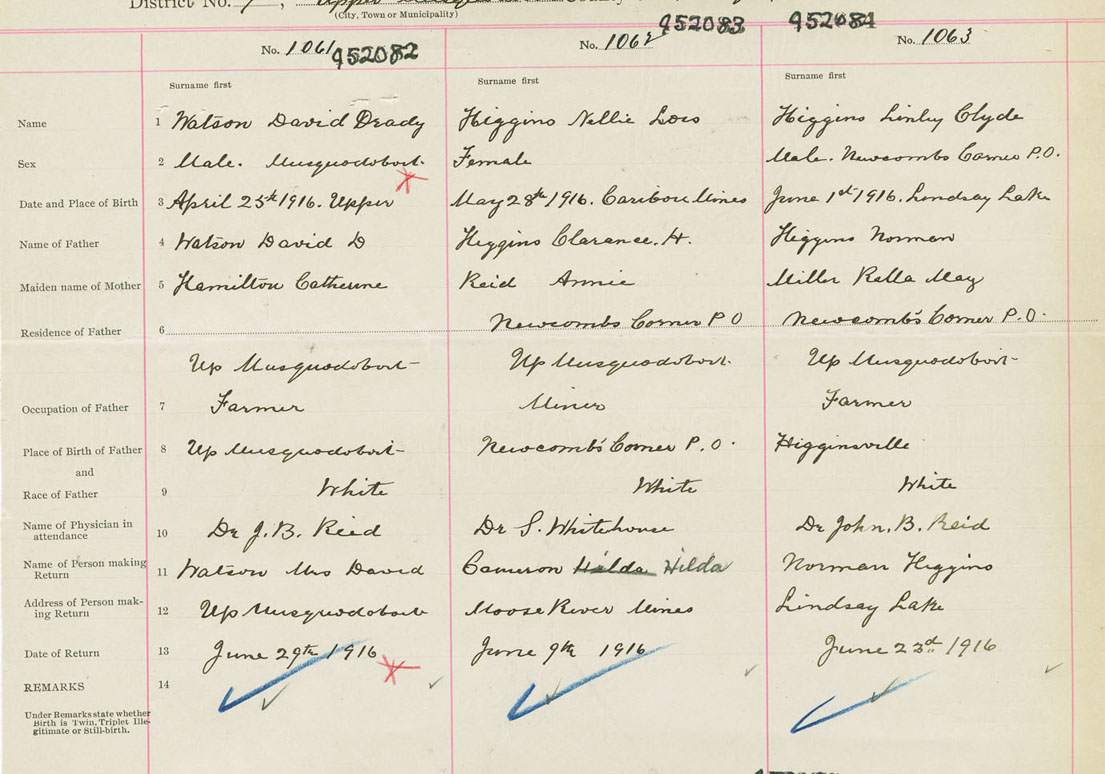 District No. 7, Upper
(City, Town or Municipality)
No. 1061 952082 No. 1062 952083 952084 No. 1063
Surname first Surname first Surname first
Name 1 Watson David Deady Higgins Nellie Lois Higgins Linley Clyde
Sex 2 Male. Musquodoboit Female Male. Newcombs Corner P.O.
Date and Place of Birth 3 April 25th 1916. Upper May 28th 1916. Caribou Mines June 1st 1916. Lindsay Lake
Name of Father 4 Watson David D Higgins Clarance. H. Higgins Norman
Maiden name of Mother 5 Hamilton Catherine Reid Annie Miller Rella May
Residence of Father 6 Newcombs Corner P O Newcomb's Corner P.O.
Up Musquodoboit Up Musquodoboit Up Musquodoboit
Occupation of Father 7 Farmer Miner Farmer
Place of Birth of Father 8 Up Musquodoboit Newcomb's Corner P.O. Higginsville
and
Race of Father 9 White White White
Name of Physician in
attendance 10 Dr J. B. Reid Dr S. Whitehouse Dr John. B. Reid
Name of Person making
Return 11 Watson Mrs David Cameron Hilda Hilda Norman Higgins
Address of Person mak-
ing Return 12 Up Musquodoboit Moose River Mines Lindsay Lake
Date of Return 13 June 29th 1916 June 9th 1916 June 23rd 1916
REMARKS 14
Under Remarks state whether
Birth is Twin, Triplet Ille-
gitimate or Still-birth.